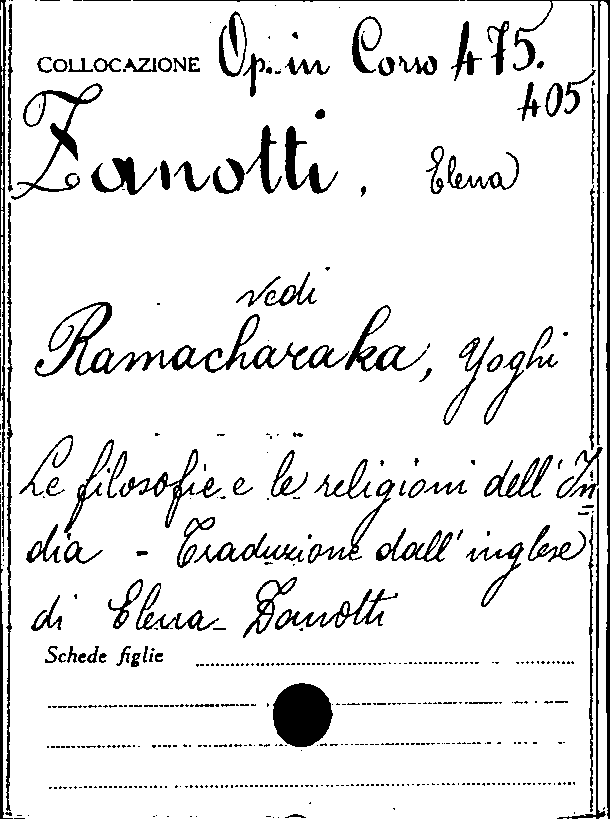 COLLOCAZIONE Op. in Corso 475.
405
Zanotti, Elena
vedi
Ramacharaka, Yoghi
Le filosofie e le religioni dell'In=
dia - Traduzione dall'inglese
di Elena Zanotti
Schede figlie